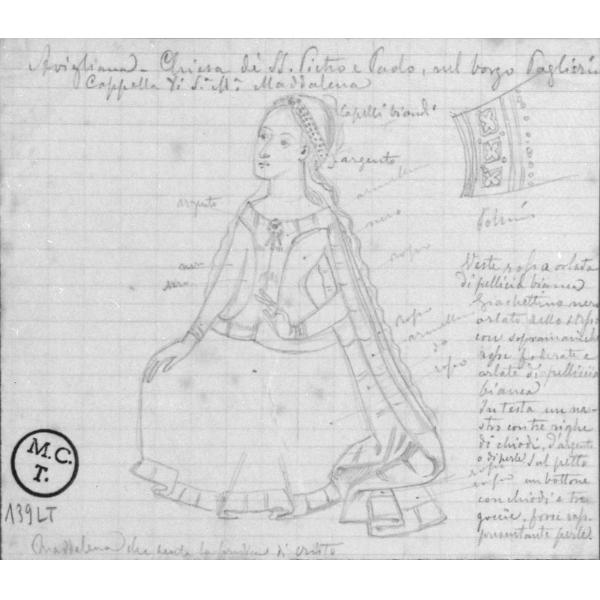 Avigliana - Chiesa di SS. Pietro e Paolo, sul borgo Paglieri
Cappella di S.ª M.ª Maddalena
Capelli biondi
argento
armellino
argento
nero
nero
rosso
rosso
armellino
rosso
Polsini
Veste rossa orlata
di pelliccia bianca
Giacchettino nero
orlato dello stesso
con sopramaniche
rosse foderate e
orlate di pelliccia
bianca
In testa un na-
stro con tre righe
di chiodi d'argento
o di perle sul petto
un bottone
con chiodi a tre
goccie, forse rap-
presentante perle
M.C.
T.
139LT
Maddalena che di Cristo